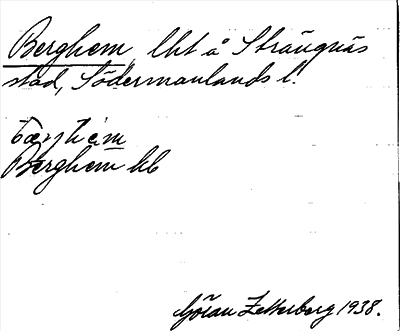 Berghem, lht å Strängnäs
stad, Södermanlands l.
Berghem hb
Göran Zetterberg 1938.